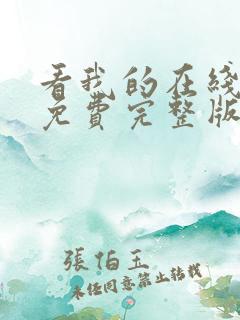 看我的在线
免費完整版
張怕玉
未经同意禁止转载